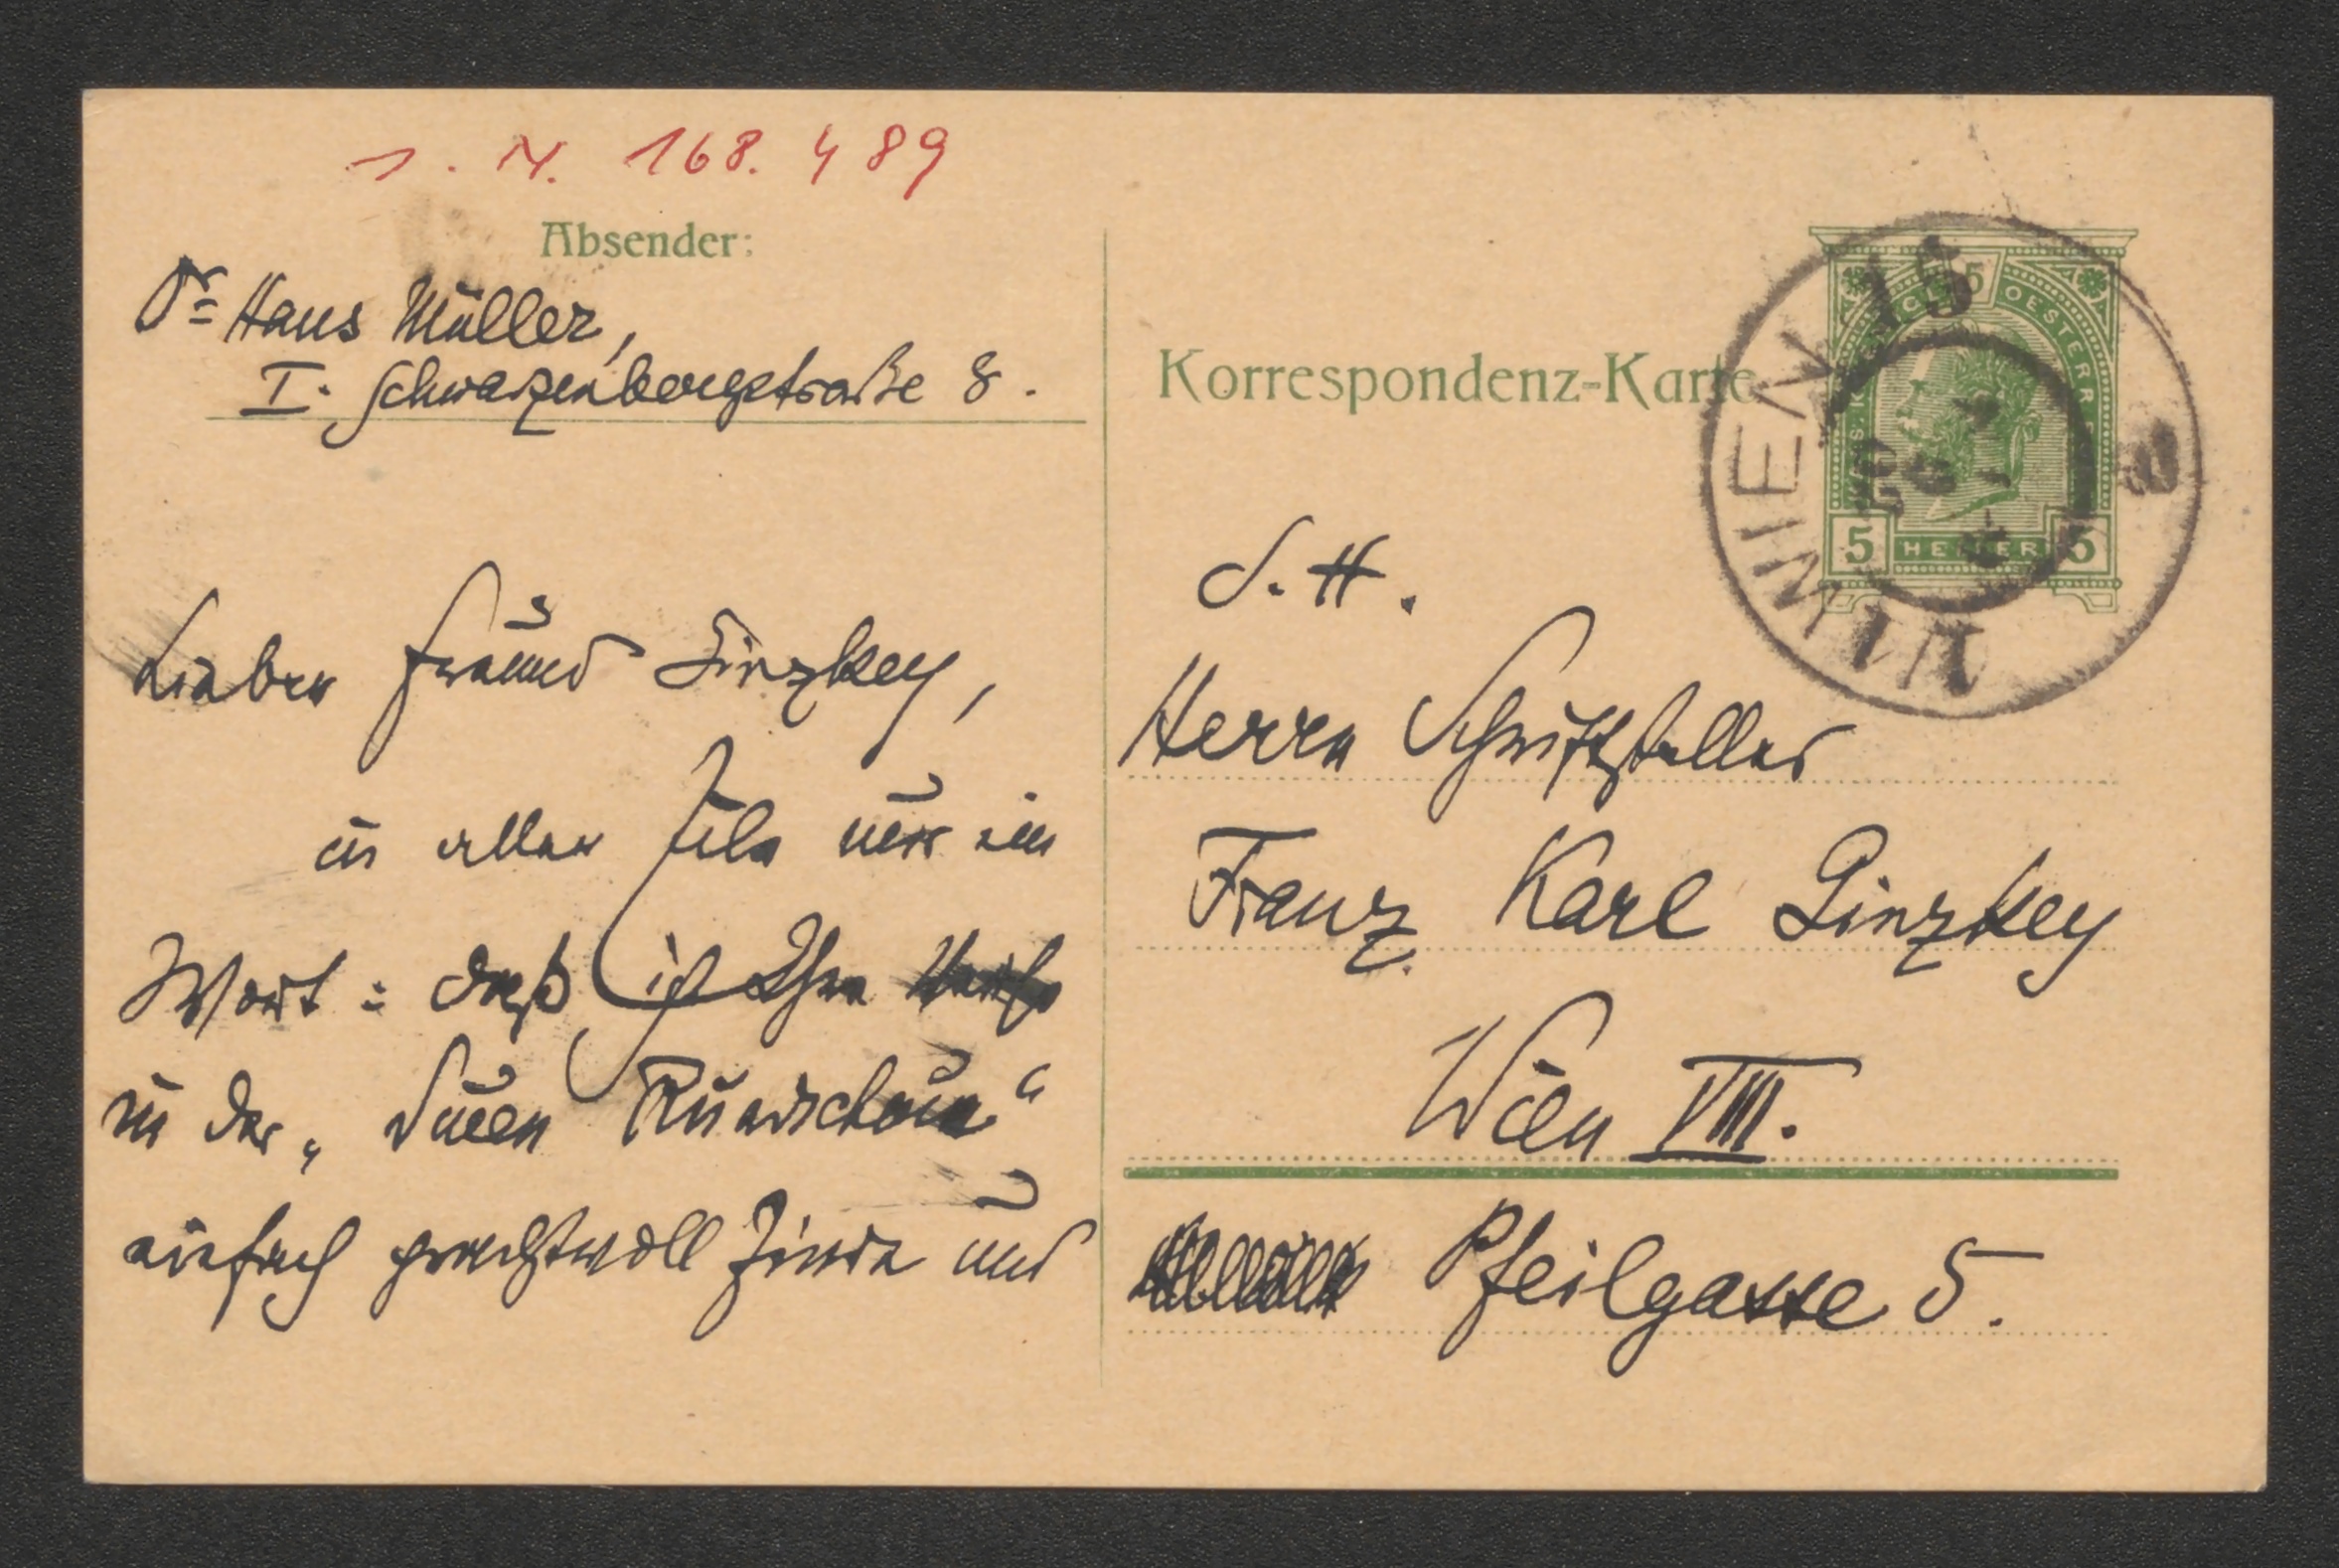 I. N. 168.489
Absender:
Dr Hans Müller,
I. Schwarzenbergstraße 8.
Lieber Freund Ginzkey,
in aller Eile nur ein
Wort: daß ich Ihre
in der „Neuen Rundschau“
einfach prachtvoll finde und
Korrespondenz-Karte
5
HELLER
5 5
1/1 WIEN 15
S. H.
Herrn Schriftsteller
Franz Karl Ginzkey
Wien VIII.
Pfeilgasse 5.